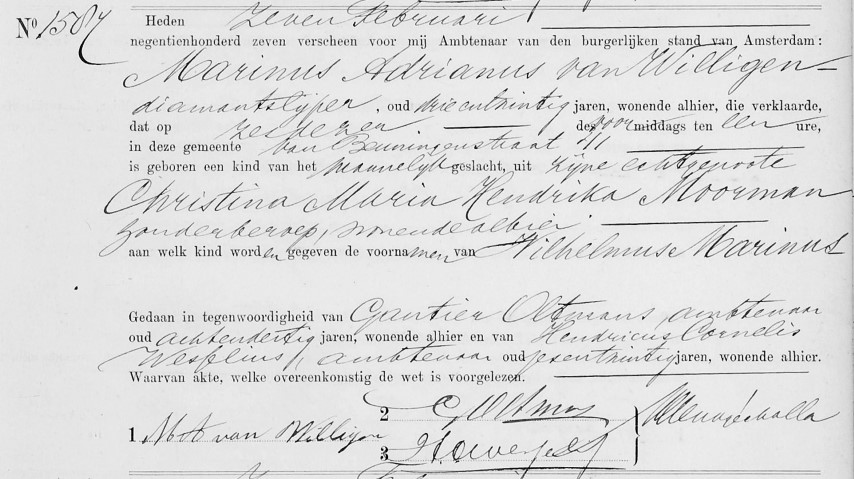 No. 1587 Heden zeven Februari
negentienhonderd zeven verscheen voor mij Ambtenaar van den burgerlijken stand van Amsterdam:
Marinus Adrianus van Willigen
diamantslijper, oud drieentwintig jaren, wonende alhier, die verklaarde,
dat op zes dezer des voormiddags ten een ure,
in deze gemeente van Beuningenstraat 41
is geboren een kind van het mannelijk geslacht, uit zijne echtgenoote
Christina Maria Hendrika Moorman
zonder beroep, wonende alhier.
aan welk kind worden gegeven de voornamen van Wilhelmus Marinus
Gedaan in tegenwoordigheid van Gautier Oltmans, ambtenaar
oud achtendertig jaren, wonende alhier en van Hendricus Cornelis
Wesselius, ambtenaar oud zesentwintig jaren, wonende alhier.
Waarvan akte, welke overeenkomstig de wet is voorgelezen.
2 G Oltmans
1 M A van Willigen
3